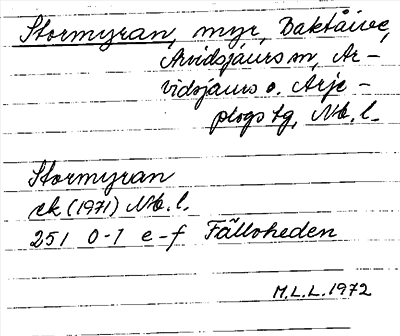 Stormyran, myr, Baktåive,
Arvidsjaurs sn, Ar-
vidsjaurs o. Arje-
plogs tg, Nb. l.
Stormyran
ek (1971) Nb. l.
251 0-1 e-f Fälloheden
M.L.L. 1972